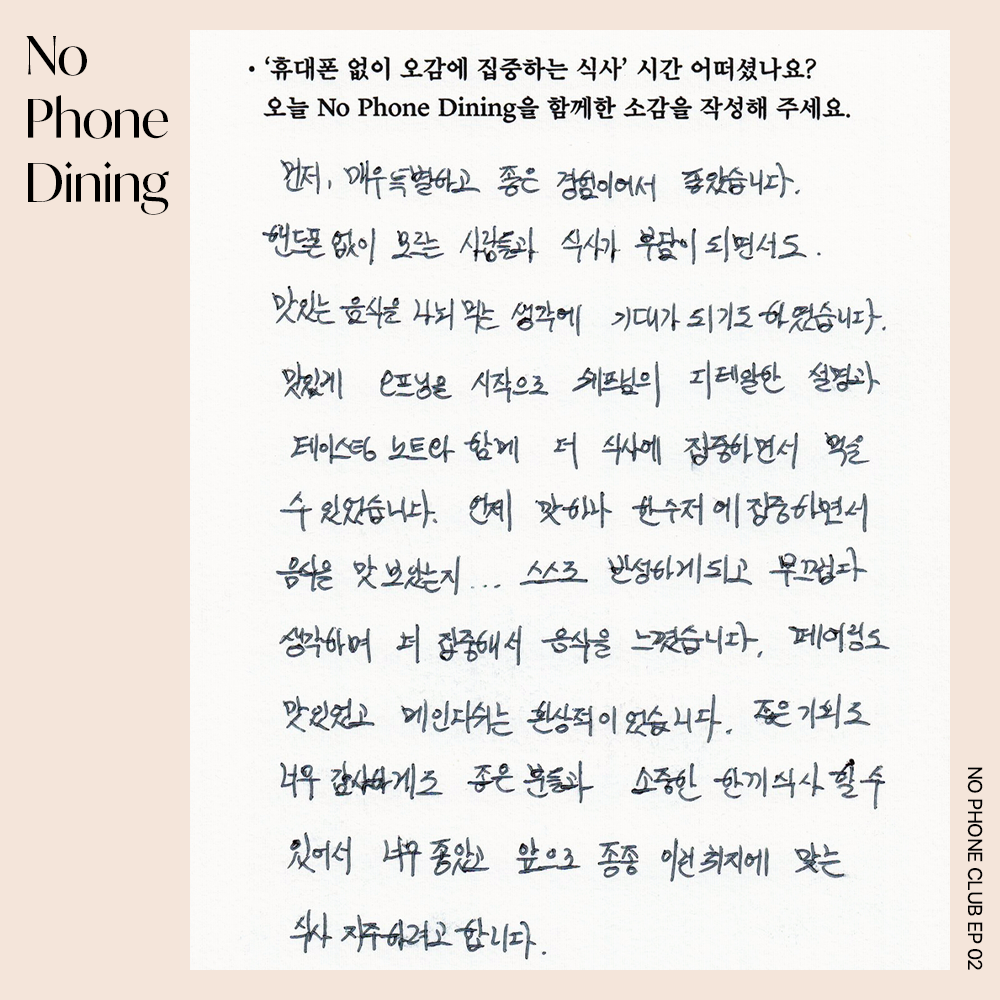 No
Phone
Dining
• ‘휴대폰 없이 오감에 집중하는 식사’ 시간 어떠셨나요?
오늘 No Phone Dining을 함께한 소감을 작성해 주세요.
먼저, 매우 특별하고 좋은 경험이어서 좋았습니다.
핸드폰 없이 모르는 사람들과 식사가 부담이 되면서도.
맛있는 음식을 나눠 먹는 생각에 기대가 되기도 하였습니다.
맛있게 오프닝을 시작으로 쉐프님의 디테일한 설명과
테이스팅 노트와 함께 더 식사에 집중하면서 먹을
수 있었습니다. 언제 맛 하나 한수저에 집중하면서
음식을 맛 보았는지... 스스로 반성하게 되고 부끄럽다
생각하며 더 집중해서 음식을 느꼈습니다, 페어링도
맛있었고 메인디쉬는 환상적이었습니다. 좋은 기회로
너무 감사하게도 좋은 분들과 소중한 한끼 식사 할 수
있어서 너무 좋았고 앞으로 종종 이런 취지에 맞는
식사 자주하려고 합니다.
NO PHONE CLUB EP 02